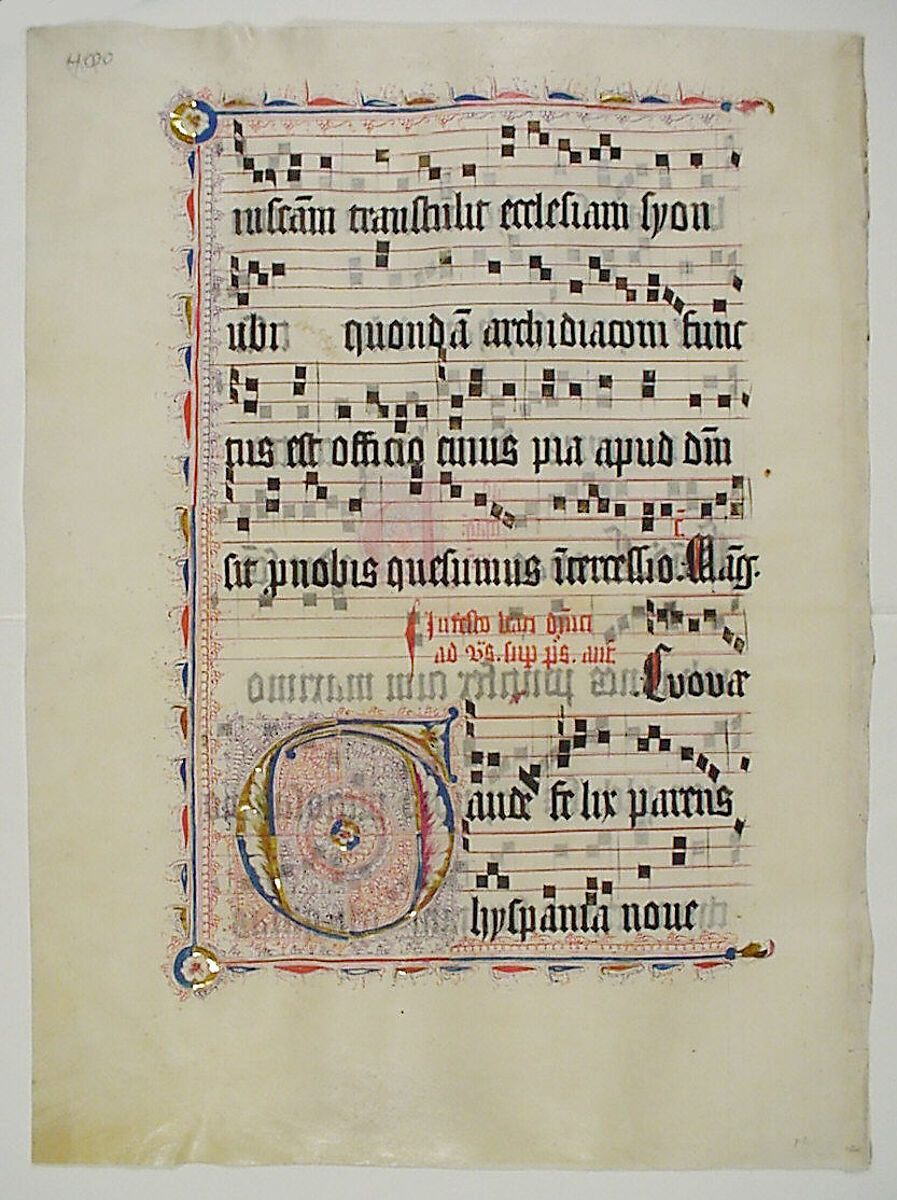 iuscām transtulit ecclesiam syon
ubi quondā archidiaconi func
tus est officio cuius pia apud dn̄m
sit pnobis quesumus ītercessio. Mag̅.
In festo beati dn̄ici
ad vs. sup ps. ant
Euovae
aude felix parens
hyspania noue